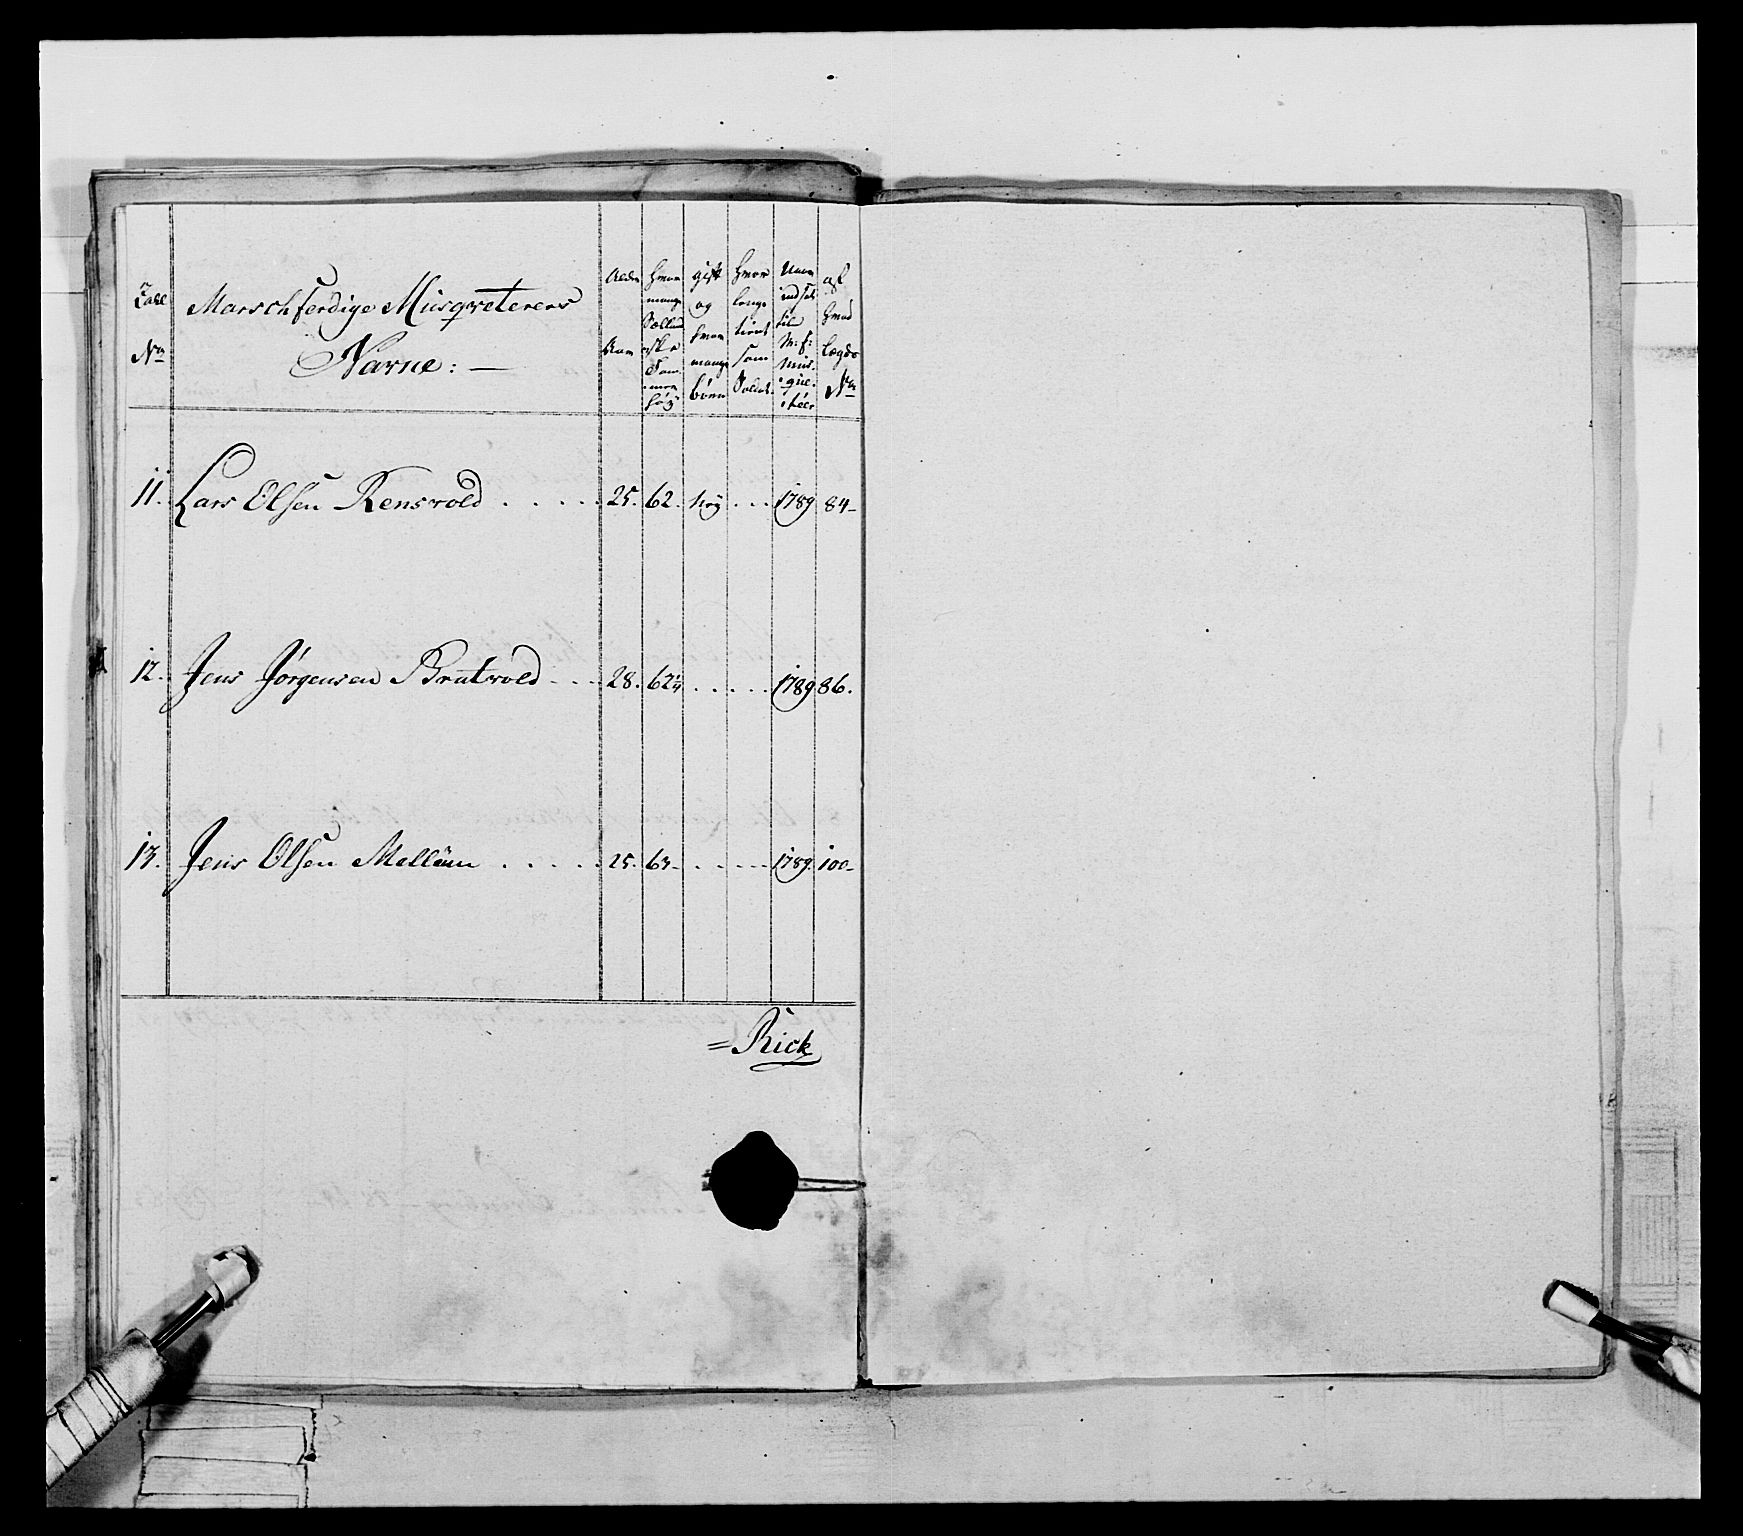 Tahl No Marschferdige Musqveterers Navne: —
Alder Aar
Hvor mange Sællandske Tommer høy
gift og hvor mange børn
Hvor lenge tient som Soldat
Naar indsat til M: f: Musqueteer
af hvad Lægds No
11. Lars Olsen Rensvold . . . . . 25. 62. Ney . . . 1789 84-
12. Jens Jørgensen Bratvold - - - 28. 62¼ . . . . . 1789 86.
13. Jens Olsen Mellum . . . . . 25. 63- . . . . . 1789. 100-
= Rick